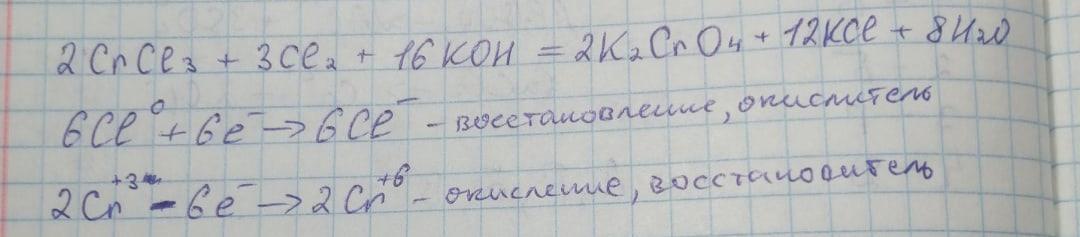 2CrCl₃ + 3Cl₂ + 16KOH = 2K₂CrO₄ + 12KCl + 8H₂O
6Cl⁰ + 6e⁻ → 6Cl⁻ - восстановление, окислитель
2Cr⁺³ - 6e⁻ → 2Cr⁺⁶ - окисление, восстановитель